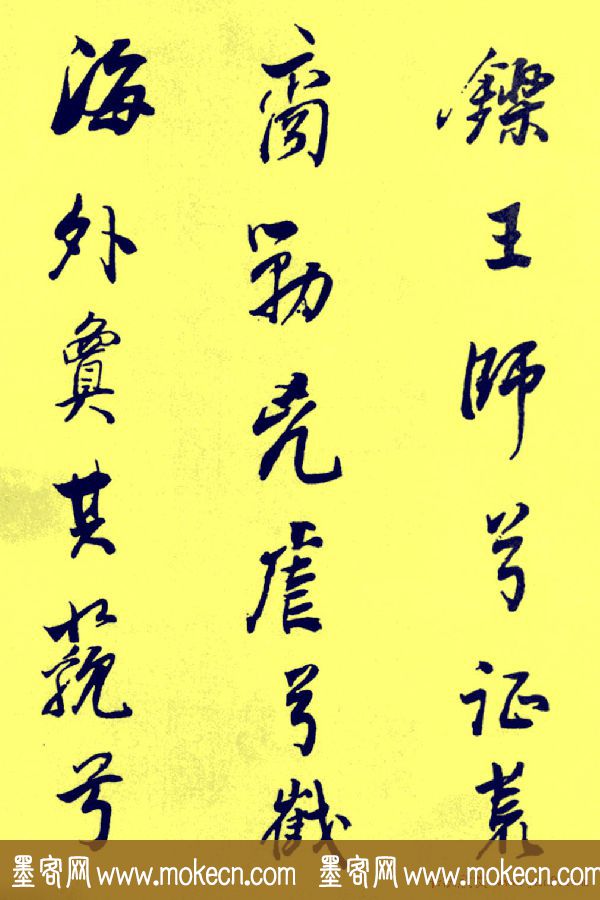 鑠王師兮征荒
裔勦兇虐兮截
海外夐其藐兮
墨客网 www.mokecn.com 墨客网 www.mokecn.com